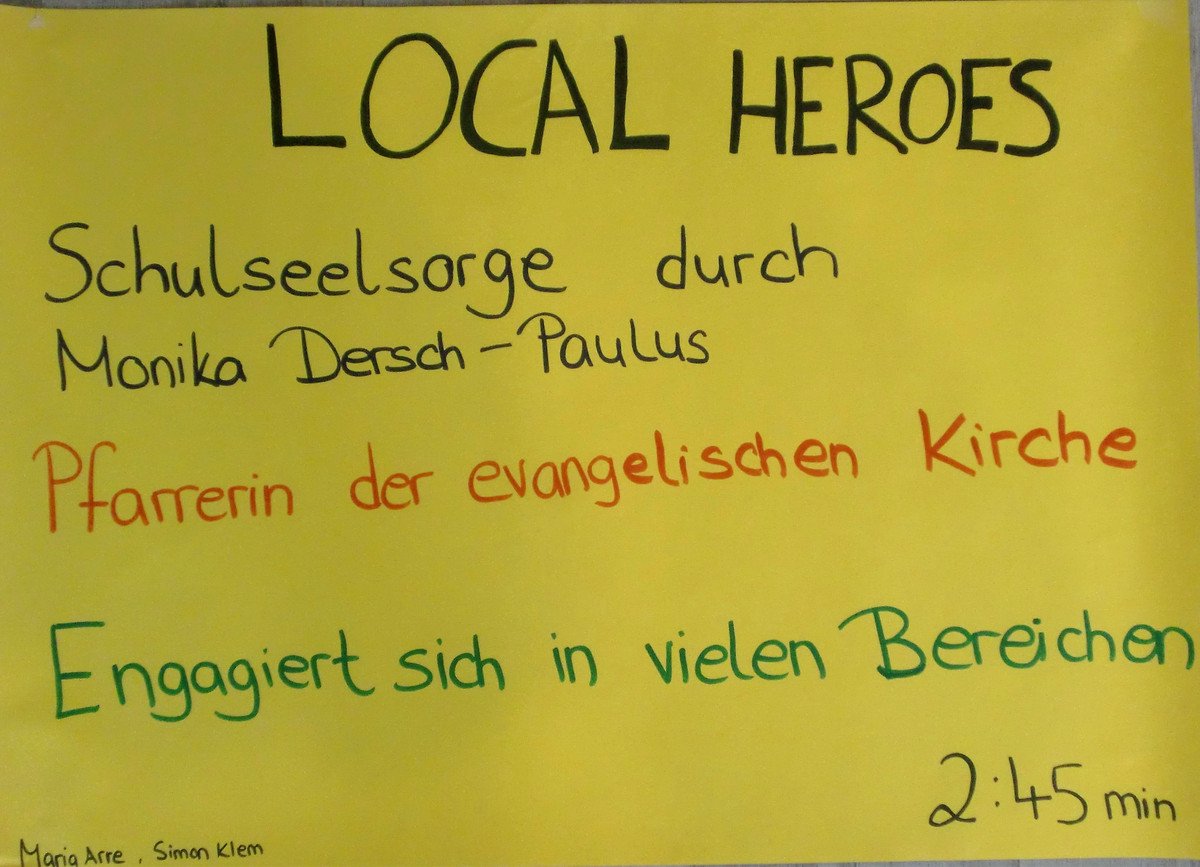 LOCAL HEROES
Schulseelsorge durch
Monika Dersch-Paulus
Pfarrerin der evangelischen Kirche
Engagiert sich in vielen Bereichen
2:45 min
Maria Arre, Simon Klem